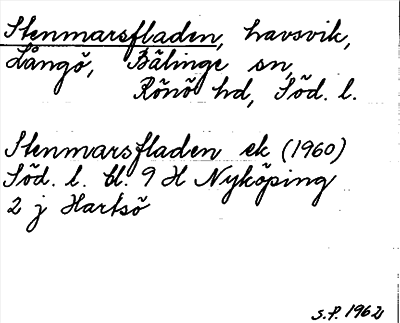 Stenmarsfladen, havsvik,
Långö, Bälinge sn,
Rönö hd, Söd. l.
Stenmarsfladen ek (1960)
Söd. l. bl. 9 H Nyköping
2 j Hartsö
S.P. 1962